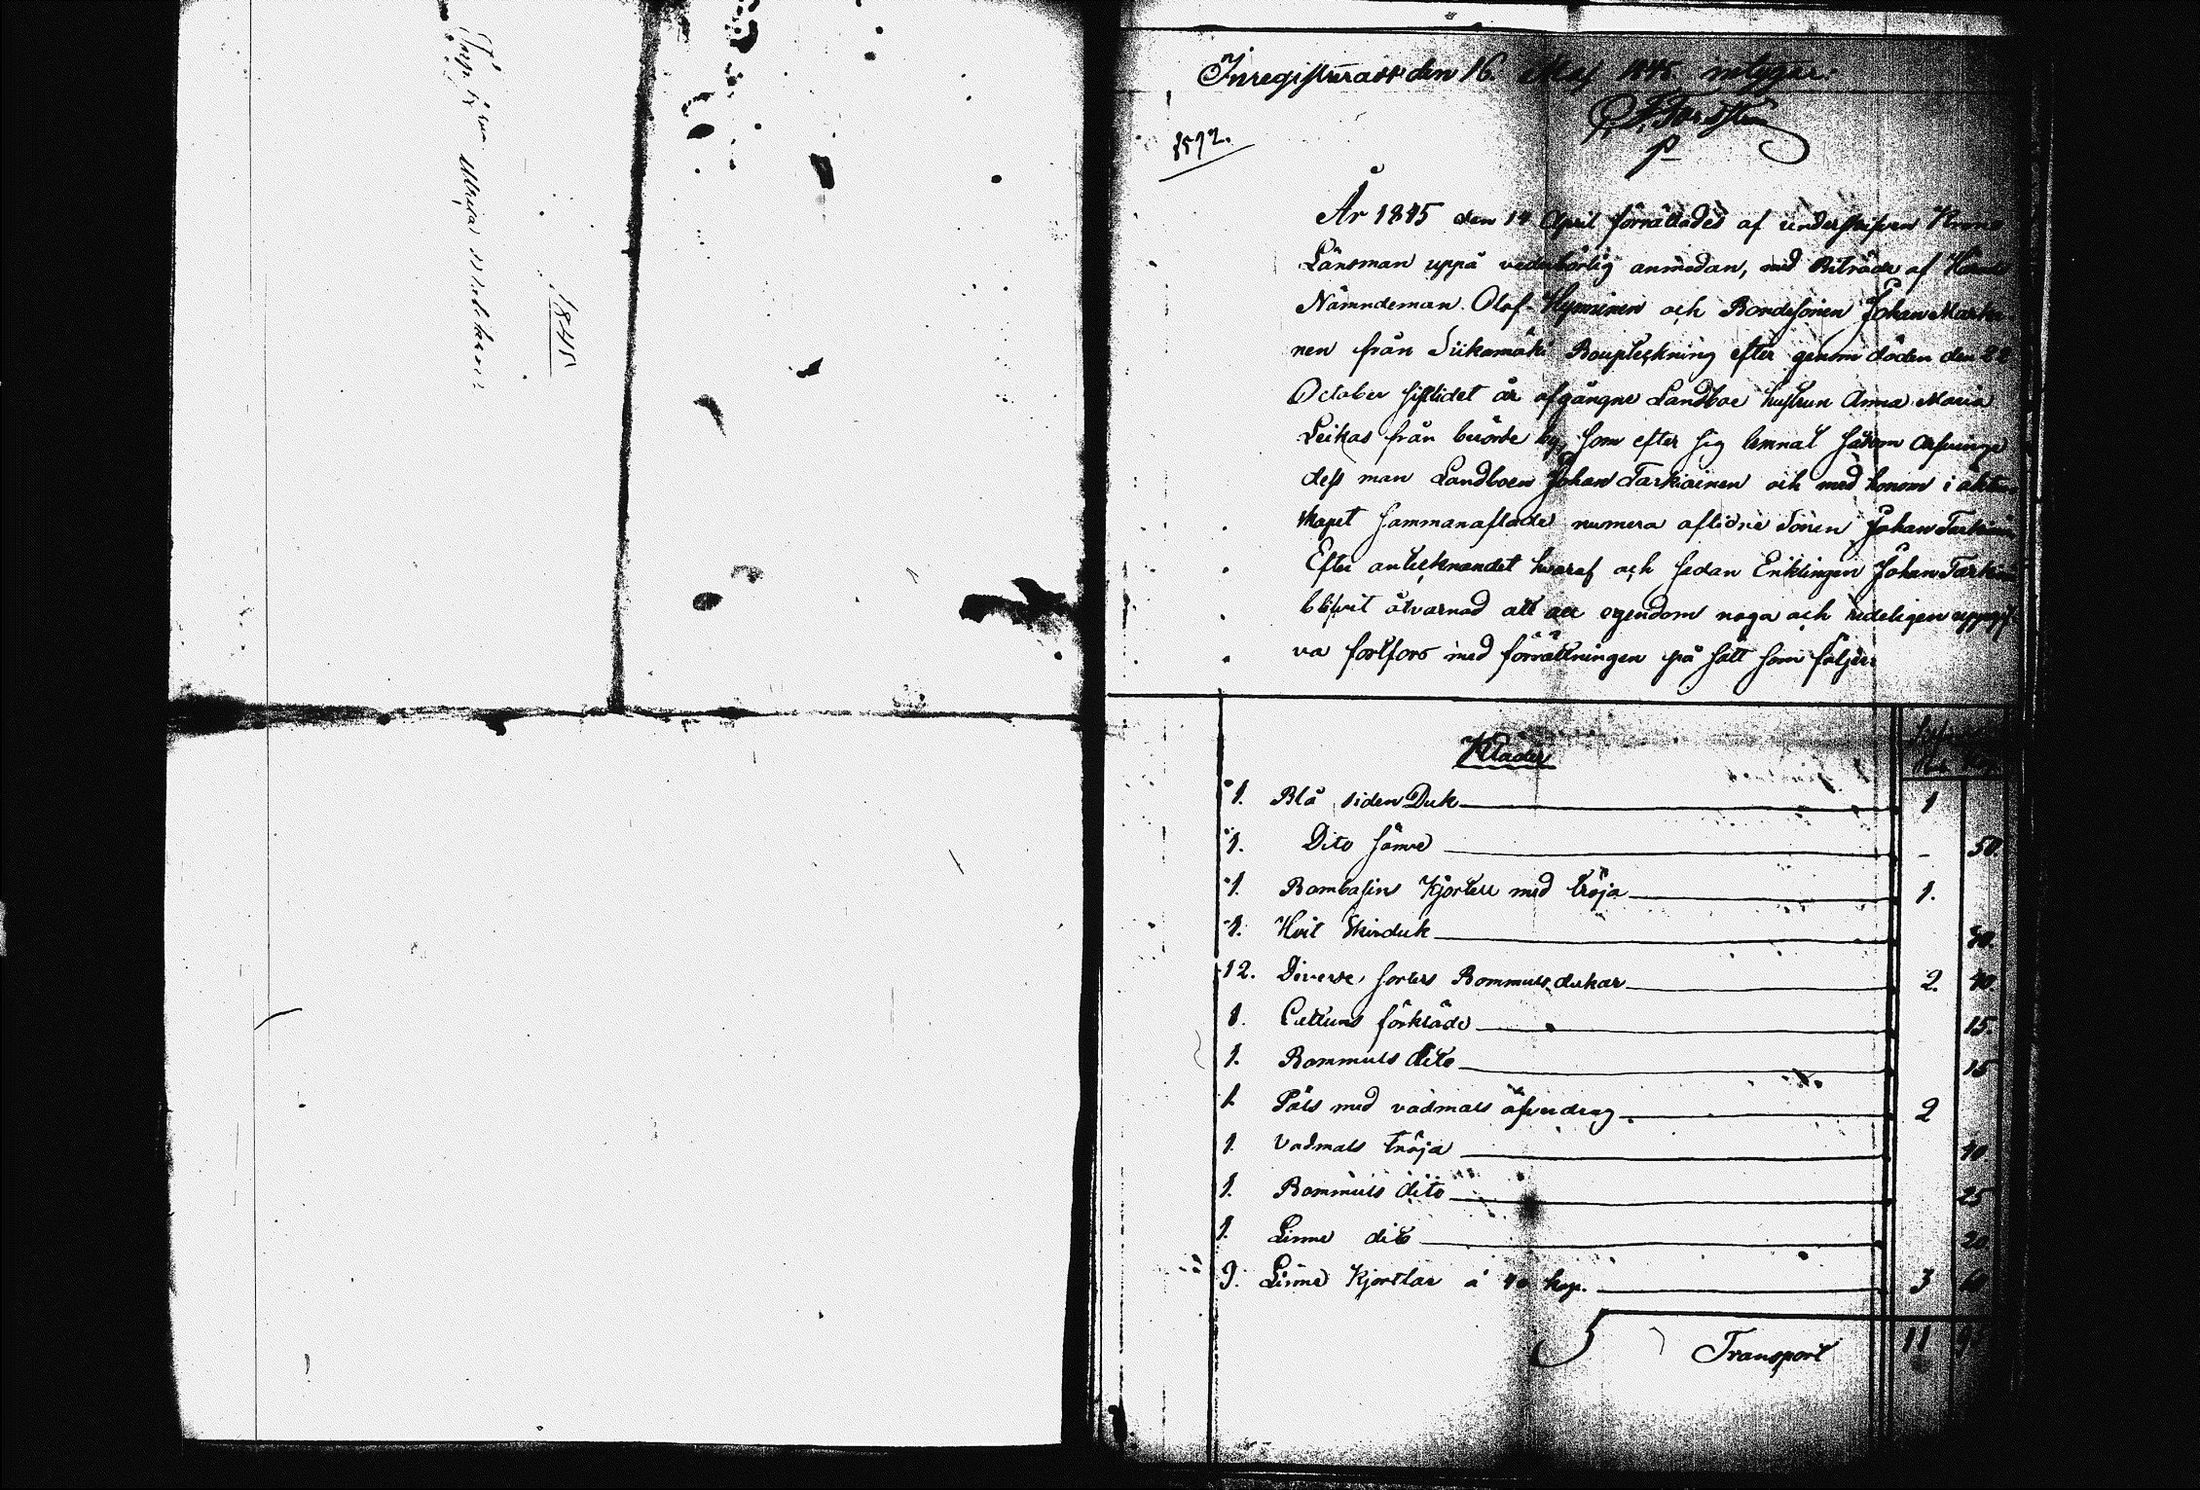 1845
Inregistreras den 16 Maj 1845 intygar:
År 1845 den 14 April förrättades af underskrifven Krono
Länsman uppå vederbörlig anmodan, med Biträde af
Nämndeman Olof Hynninen och Bondesonen Johan Marka-
nen från Siikamäki Bouptekning efter genom döden den 22
October sistlidet år afgångne Landboe hustrun Anna Maria
Leikas från berörde by, som efter sig lemnat såsom
dess man Landboen Johan Tarkiainen och med honom i äkten
skapet sammanaflade numera aflidne sonen Johan Tarkiai
Efter antecknandet hvaraf och sedan Enklingen Johan Tarkiai
blifvit åtvarnad att all egendom noga och redeligen uppgif
va fortfors med förrättningen på sätt som följer:
Kläder
1. Blå siden Duk 1
1. Dito sämre - 50.
1. Bombasins Kjortell med tröja 1.
1. Hvit Skirduk
12. Diverse sorters Bommuls dukar 2. 40.
1. Cattuns förkläde 15.
1. Bommuls dito 15
1. Päls med vadmals öfverdrag 2
1. Vadmals tröja 40
1. Bommuls dito 25
1. Linne dito 20.
9. Linne Kjortlar á 40 kop. 3 60
Transport 11